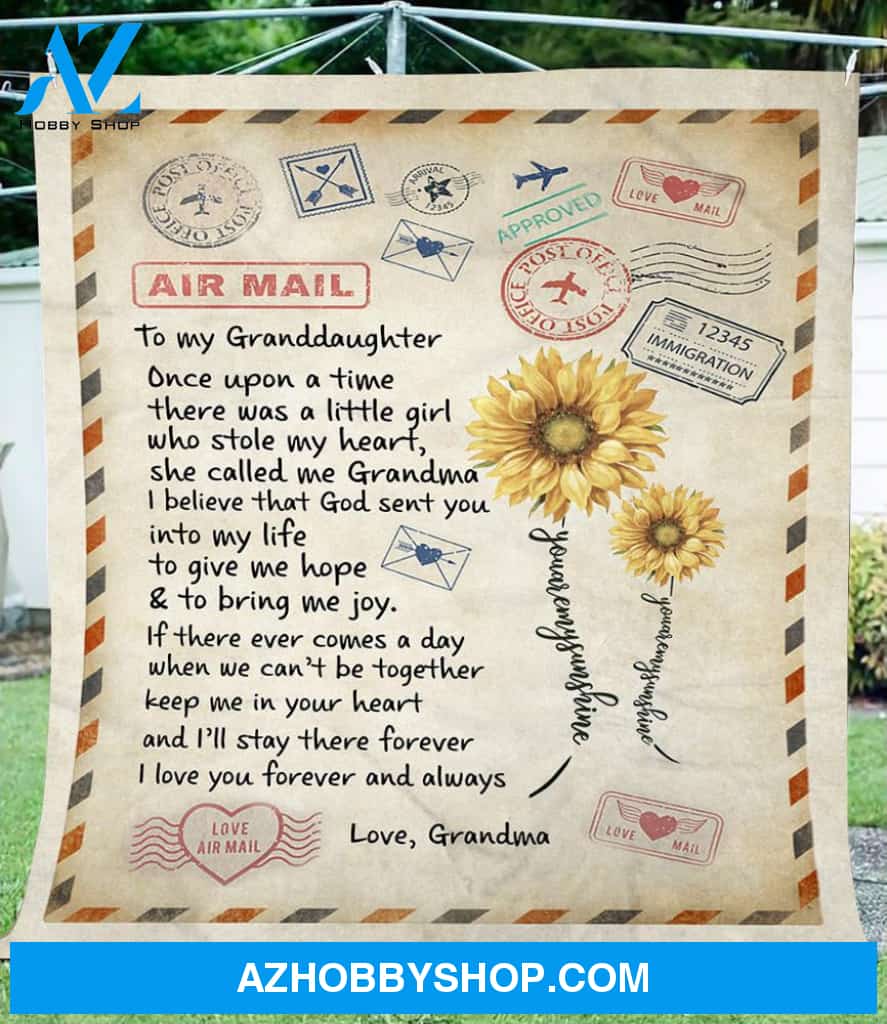 AZ
HOBBY SHOP
POST OFFICE POST OFFICE
ARRIVAL
12345
APPROVED
LOVE MAIL
AIR MAIL
POST OFFICE POST OFFICE
12345
IMMIGRATION
************
To my Granddaughter
Once upon a time
there was a little girl
who stole my heart,
she called me Grandma
I believe that God sent you
into my life
to give me hope
& to bring me joy.
If there ever comes a day
when we can't be together
keep me in your heart
and I'll stay there forever
I love you forever and always
Love, Grandma
youaremysunshine
youaremysunshine
LOVE
AIR MAIL
LOVE MAIL
AZHOBBYSHOP.COM